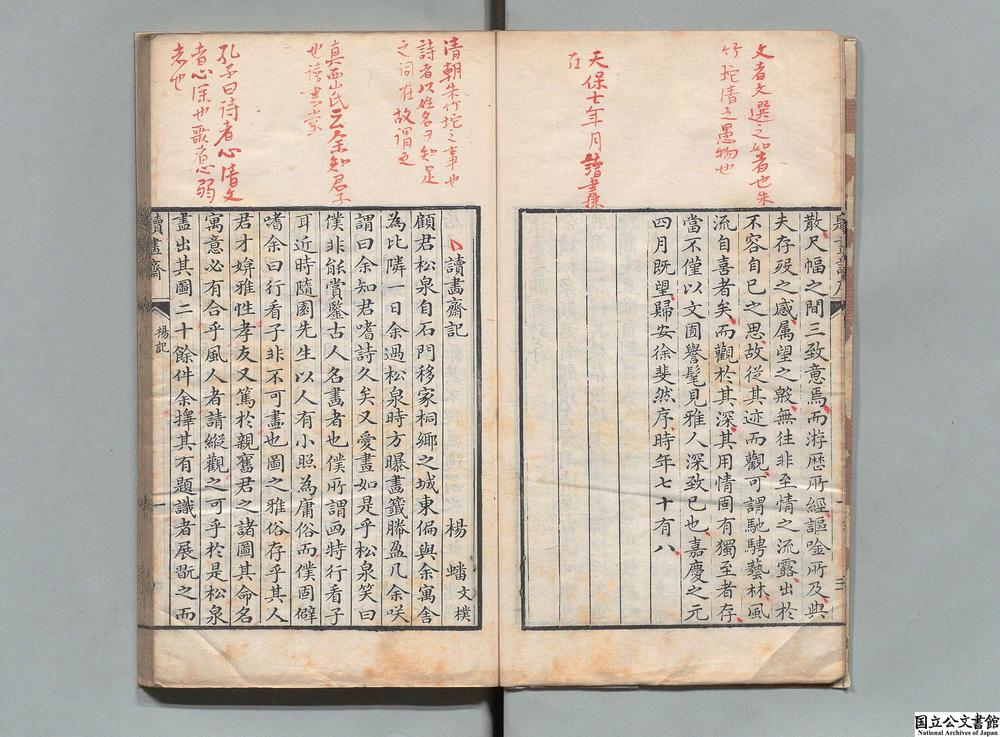 文者文選之如者也朱
竹坨清之愚物也
天保十年月讀書探
在
散尺幅之間三致意焉而游歷所經謳唫所及與
夫存歿之感属望之殷無往非至情之流露出於
不容自已之思故從其迹而觀可謂馳騁藝林風
流自喜者矣而觀於其深其用情固有獨至者存
當不僅以文囿譽髦見雅人深致已也嘉慶之元
四月既望歸安徐斐然序時年七十有八
清朝朱竹坨之事也
詩者以姓名ヲ知足
之詞在故謂之
真西山氏云余知君子
也讀書
孔子曰詩者心清文
者心深也
者也
讀畫齋記
楊蟠文樸
顧君松泉自石門移家桐鄉之城東偏與余寓舎
為比隣一日余過松泉時方曝畫籤幐盈几余咲
謂曰余知君嗜詩久矣又愛畫如是乎松泉笑曰
僕非能賞鑒古人名畫者也僕所謂画特行看子
耳近時隨園先生以人有小照為庸俗而僕固癖
嗜余曰行看子非不可畫也圖之雅俗存乎其人
君才媕雅性孝友又篤於親舊君之諸圖其命名
寓意必有合乎風人者請縱觀之可乎於是松泉
盡出其圖二十餘件余擇其有題識者展翫之而
讀畫齋
楊記
一
国立公文書館
National Archives of Japan